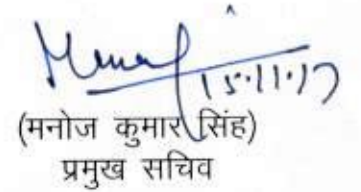 15.11.17
(मनोज कुमार सिंह)
प्रमुख सचिव